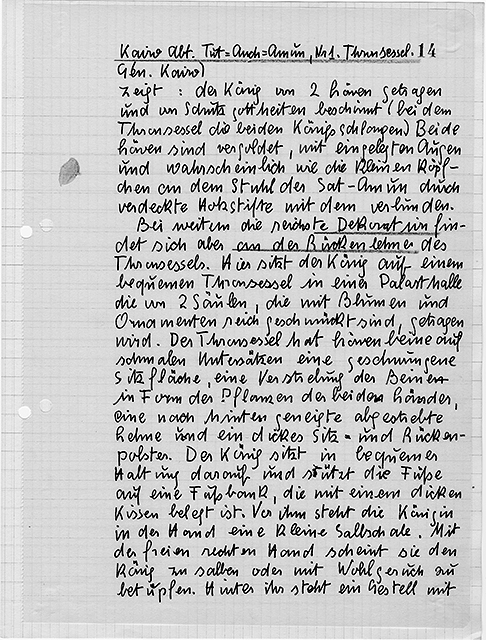 Kairo Abt. Tut=Anch=Amun, Nr 1. Thronsessel. 14
Gen. Kairo)
zeigt : der König von 2 Löwen getragen
und von Schutzgottheiten beschirmt (bei dem
Thronsessel die beiden Königsschlangen) Beide
Löwen sind vergoldet, mit eingelegten Augen
und wahrscheinlich wie die kleinen Köpf-
chen an dem Stuhl der Sat-Amun durch
verdeckte Holzstifte mit dem verbunden.
Bei weitem die reichste Dekoration fin-
det sich aber an der Rückenlehne des
Thronsessels. Hier sitzt der König auf einem
bequemen Thronsessel in einer Palasthalle
die von 2 Säulen, die mit Blumen und
Ornamenten reich geschmückt sind, getragen
wird. Der Thronsessel hat Löwenbeine auf
schmalen Untersätzen eine geschwungene
Sitzfläche, eine Verstrebung der Beinen
in Form der Pflanzen der beiden Länder,
eine nach hinten geneigte abgestrebte
Lehne und ein dickes Sitz= und Rücken-
polster. Der König sitzt in bequemer
Haltung darauf und stützt die Füße
auf eine Fußbank, die mit einem dicken
Kissen belegt ist. Vor ihm steht die Königin
in der Hand eine kleine Salbschale. Mit
der freien rechten Hand scheint sie den
König zu salben oder mit Wohlgeruch zu
betupfen. Hinter ihr steht ein Gestell mit